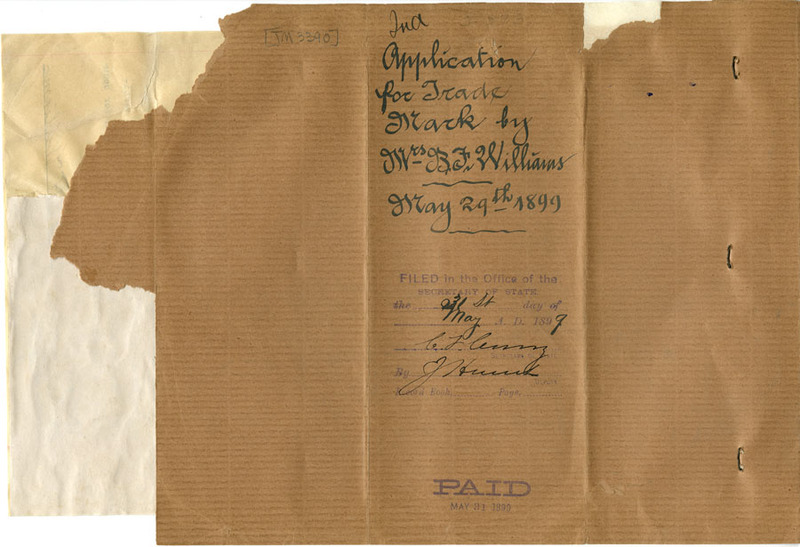 [TM 3390]
Ind
Application
for Trade
Mark by
Mrs B. F. Williams
May 29th 1899
FILED in the Office of the
SECRETARY OF STATE
the 31st day of
May A. D. 1899
By
Record Book Page
PAID
MAY 31 1899